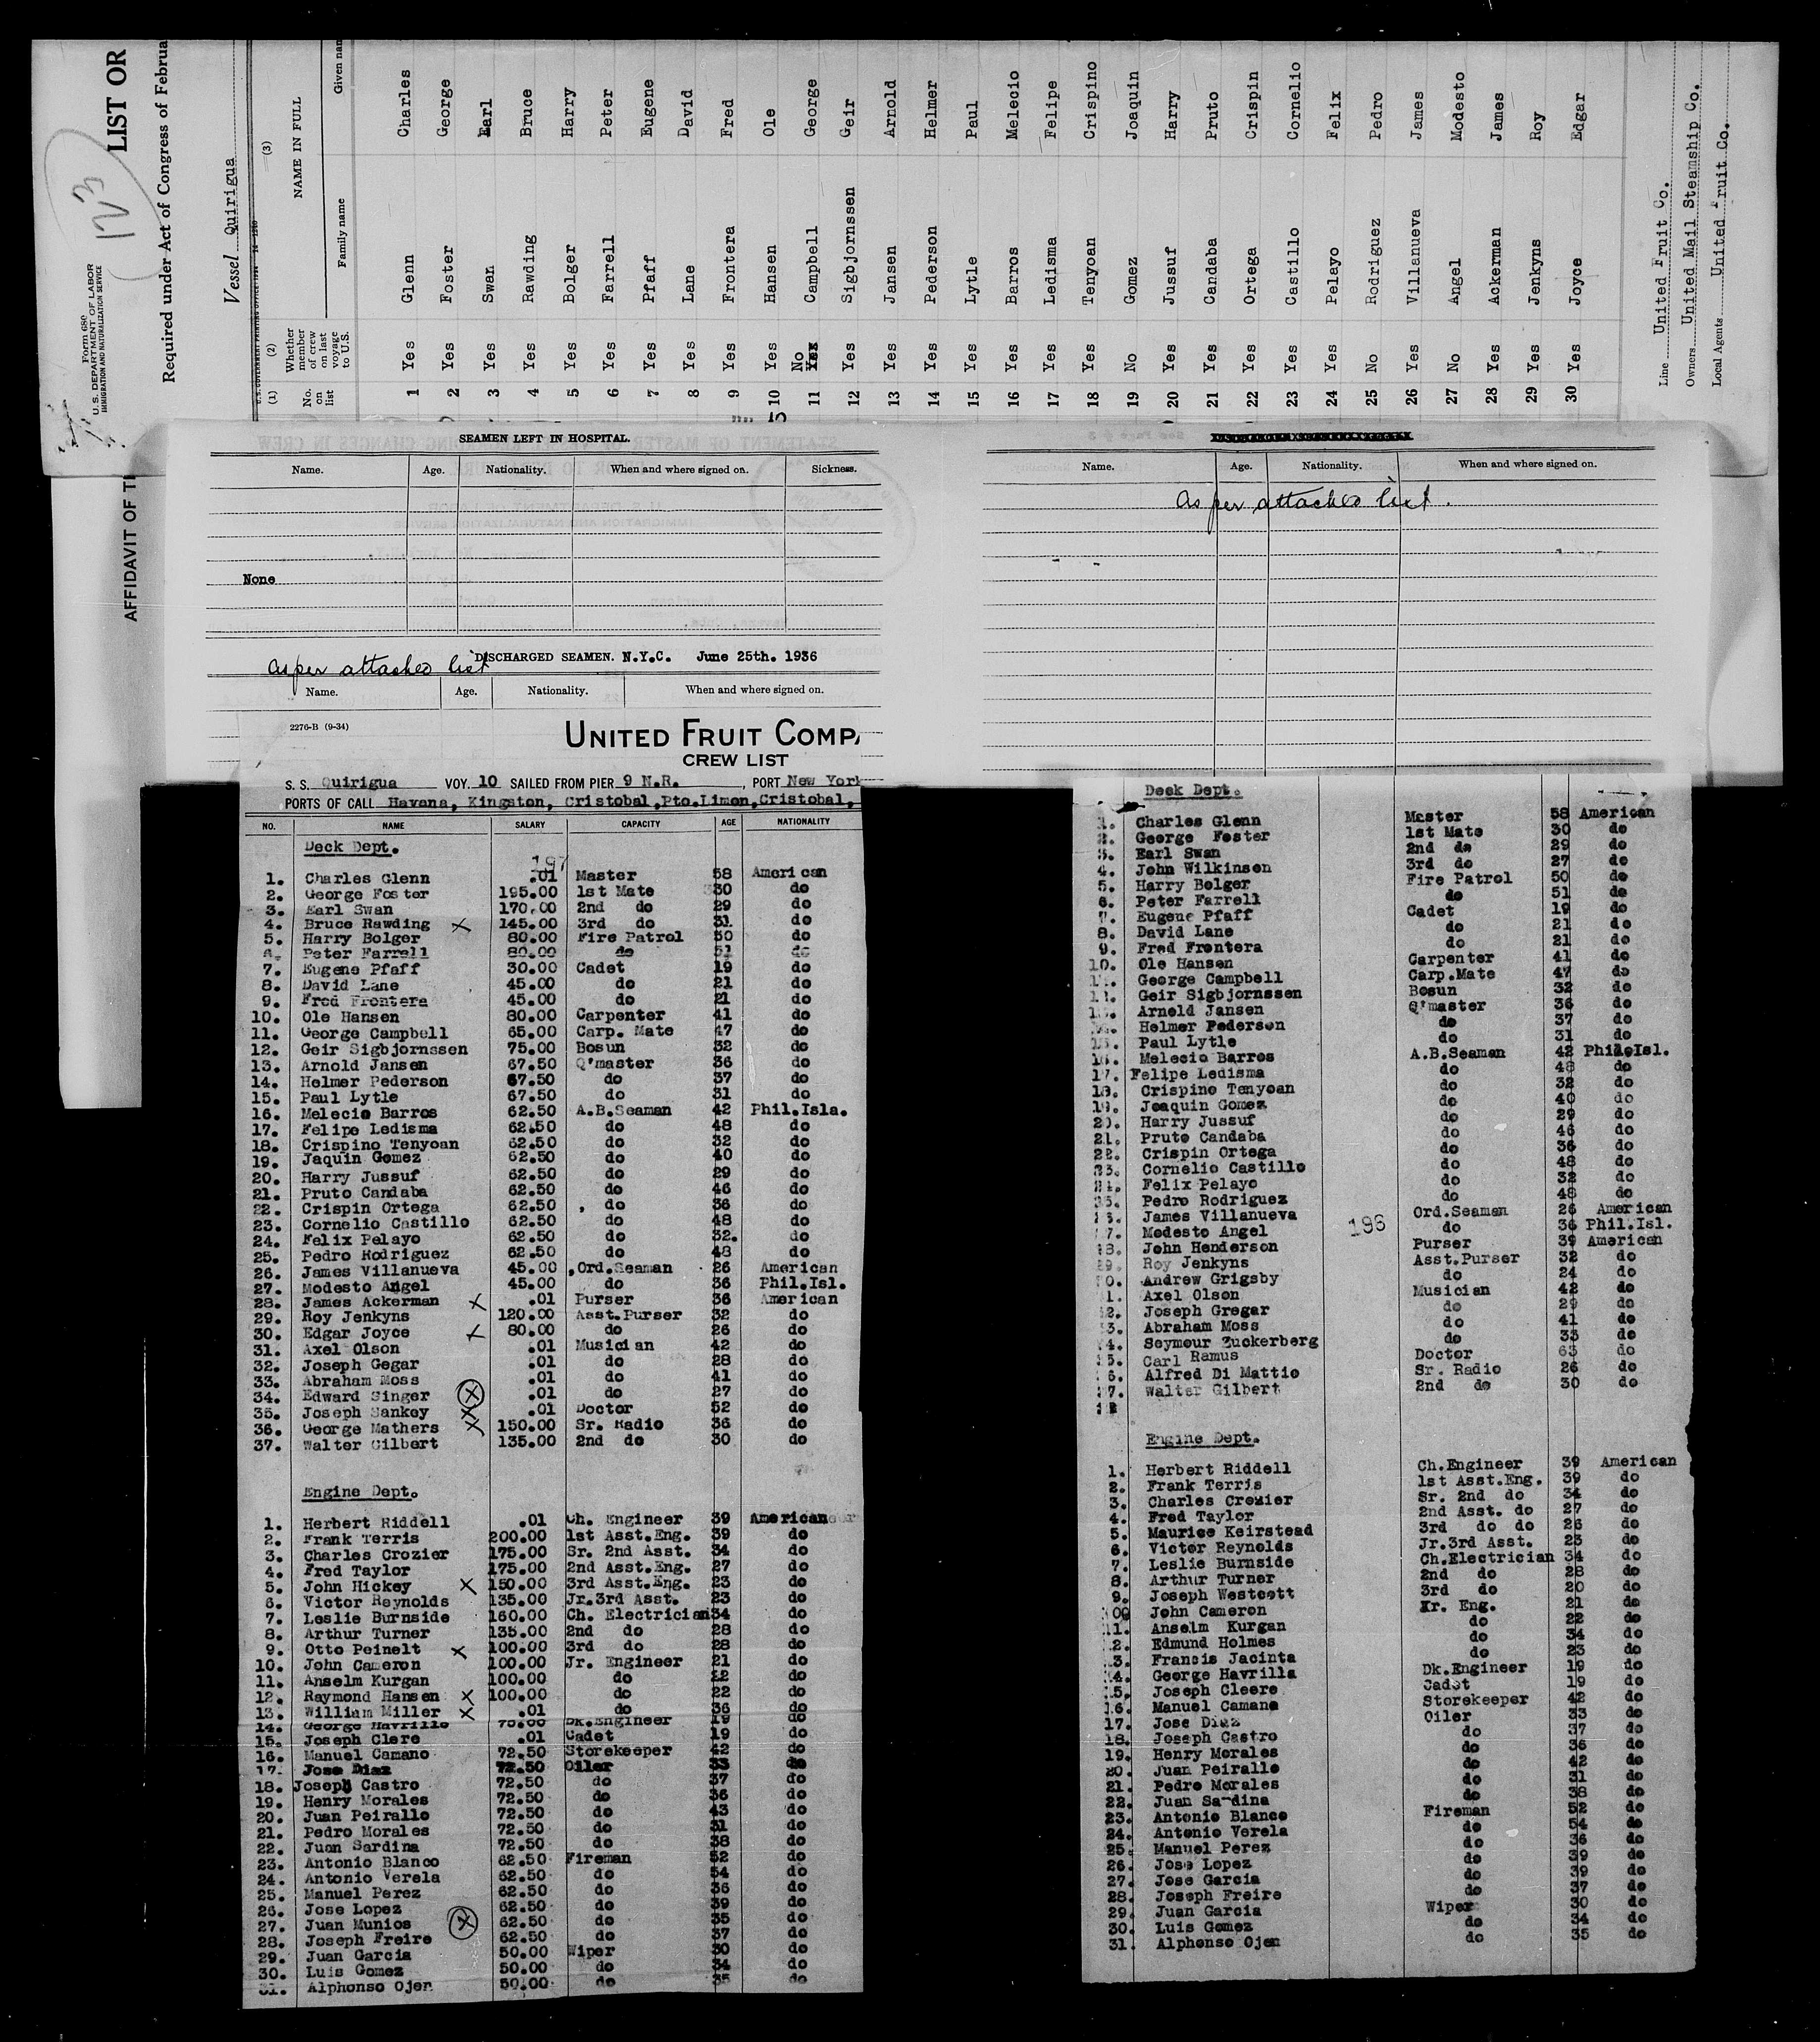 123
LIST OR
Form 680
U. S. DEPARTMENT OF LABOR
IMMIGRATION AND NATURALIZATION SERVICE
Required under Act of Congress of Februa
Vessel Quirigua
(1) (2) (3)
No. on list
Whether member of crew on last voyage to U.S.
NAME IN FULL
Family name Given nam
1 Yes Glenn Charles
2 Yes Foster George
3 Yes Swan Earl
4 Yes Rawding Bruce
5 Yes Bolger Harry
6 Yes Farrell Peter
7 Yes Pfaff Eugene
8 Yes Lane David
9 Yes Frontera Fred
10 Yes Hansen Ole
11 No Campbell George
12 Yes Sigbjornssen Geir
13 Yes Jansen Arnold
14 Yes Pederson Helmer
15 Yes Lytle Paul
16 Yes Barros Melecio
17 Yes Ledisma Felipe
18 Yes Tenyoan Crispino
19 No Gomez Joaquin
20 Yes Jussuf Harry
21 Yes Candaba Pruto
22 Yes Ortega Crispin
23 Yes Castillo Cornelio
24 Yes Pelayo Felix
25 No Rodriguez Pedro
26 Yes Villanueva James
27 No Angel Modesto
28 Yes Ackerman James
29 Yes Jenkyns Roy
30 Yes Joyce Edgar
Line United Fruit Co.
Owners United Mail Steamship Co.
Local Agents United Fruit Co.
AFFIDAVIT OF TH
SEAMEN LEFT IN HOSPITAL.
Name. Age. Nationality. When and where signed on. Sickness.
None
as per attached list
DISCHARGED SEAMEN. N.Y.C. June 25th. 1936
Name. Age. Nationality. When and where signed on.
Name. Age. Nationality. When and where signed on.
as per attached list.
2276-B (9-34)
UNITED FRUIT COMPA
CREW LIST
S. S. Quirigua VOY. 10 SAILED FROM PIER 9 N.R. , PORT New York
PORTS OF CALL Havana, Kingston, Cristobal,Pto.Limon,Cristobal,
NO. NAME SALARY CAPACITY AGE NATIONALITY
Deck Dept.
197
1. Charles Glenn .01 Master 58 American
2. George Foster 195.00 1st Mate 30 do
3. Earl Swan 170.00 2nd do 29 do
4. Bruce Rawding X 145.00 3rd do 31 do
5. Harry Bolger 80.00 Fire Patrol 50 do
6. Peter Farrell 80.00 do 51 do
7. Eugene Pfaff 30.00 Cadet 19 do
8. David Lane 45.00 do 21 do
9. Fred Frontera 45.00 do 21 do
10. Ole Hansen 80.00 Carpenter 41 do
11. George Campbell 65.00 Carp. Mate 47 do
12. Geir Sigbjornssen 75.00 Bosun 32 do
13. Arnold Jansen 67.50 Q'master 36 do
14. Helmer Pederson 67.50 do 37 do
15. Paul Lytle 67.50 do 31 do
16. Melecio Barros 62.50 A.B.Seaman 42 Phil.Isla.
17. Felipe Ledisma 62.50 do 48 do
18. Crispino Tenyoan 62.50 do 32 do
19. Jaquin Gomez 62.50 do 40 do
20. Harry Jussuf 62.50 do 29 do
21. Pruto Candaba 62.50 do 46 do
22. Crispin Ortega 62.50 do 36 do
23. Cornelio Castillo 62.50 do 48 do
24. Felix Pelayo 62.50 do 32. do
25. Pedro Rodriguez 62.50 do 48 do
26. James Villanueva 45.00 Ord.Seaman 26 American
27. Modesto Angel 45.00 do 36 Phil.Isl.
28. James Ackerman X .01 Purser 36 American
29. Roy Jenkyns 120.00 Asst.Purser 32 do
30. Edgar Joyce X 80.00 do 26 do
31. Axel Olson .01 Musician 42 do
32. Joseph Gegar .01 do 28 do
33. Abraham Moss .01 do 41 do
34. Edward Singer X .01 do 27 do
35. Joseph Sankey X .01 Doctor 52 do
36. George Mathers X 150.00 Sr. Radio 36 do
37. Walter Gilbert 135.00 2nd do 30 do
Engine Dept.
1. Herbert Riddell .01 Ch. Engineer 39 American
2. Frank Terris 200.00 1st Asst.Eng. 39 do
3. Charles Crozier 175.00 Sr. 2nd Asst. 34 do
4. Fred Taylor 175.00 2nd Asst.Eng. 27 do
5. John Hickey X 150.00 3rd Asst.Eng. 23 do
6. Victor Reynolds 135.00 Jr.3rd Asst. 23 do
7. Leslie Burnside 160.00 Ch. Electrician 34 do
8. Arthur Turner 135.00 2nd do 28 do
9. Otto Peinelt X 100.00 3rd do 28 do
10. John Cameron 100.00 Jr. Engineer 21 do
11. Anselm Kurgan 100.00 do 22 do
12. Raymond Hansen X 100.00 do 22 do
13. William Miller X .01 do 36 do
14. George Havrillo 75.00 Dk.Engineer 19 do
15. Joseph Clere .01 Cadet 19 do
16. Manuel Camano 72.50 Storekeeper 42 do
17. Jose Diaz 72.50 Oiler 33 do
18. Joseph Castro 72.50 do 37 do
19. Henry Morales 72.50 do 36 do
20. Juan Peirallo 72.50 do 43 do
21. Pedro Morales 72.50 do 31 do
22. Juan Sardina 72.50 do 38 do
23. Antonio Blanco 62.50 Fireman 52 do
24. Antonio Verela 62.50 do 54 do
25. Manuel Perez 62.50 do 36 do
26. Jose Lopez 62.50 do 39 do
27. Juan Munios X 62.50 do 35 do
28. Joseph Freire 62.50 do 37 do
29. Juan Garcia 50.00 Wiper 30 do
30. Luis Gomez 50.00 do 34 do
31. Alphonso Ojen 50.00 do 35 do
Deck Dept.
1. Charles Glenn Master 58 American
2. George Foster 1st Mate 30 do
3. Earl Swan 2nd do 29 do
4. John Wilkinson 3rd do 27 do
5. Harry Bolger Fire Patrol 50 do
6. Peter Farrell do 51 do
7. Eugene Pfaff Cadet 19 do
8. David Lane do 21 do
9. Fred Frontera do 21 do
10. Ole Hansen Carpenter 41 do
11. George Campbell Carp.Mate 47 do
12. Geir Sigbjornssen Bosun 32 do
13. Arnold Jansen Q'master 36 do
14. Helmer Pederson do 37 do
15. Paul Lytle do 31 do
16. Melecio Barros A.B.Seaman 42 Phil.Isl.
17. Felipe Ledisma do 48 do
18. Crispino Tenyoan do 32 do
19. Joaquin Gomez do 40 do
20. Harry Jussuf do 29 do
21. Pruto Candaba do 46 do
22. Crispin Ortega do 36 do
23. Cornelio Castillo do 48 do
24. Felix Pelayo do 32 do
25. Pedro Rodriguez do 48 do
26. James Villanueva Ord.Seaman 26 American
27. Modesto Angel 196 do 36 Phil.Isl.
28. John Henderson Purser 39 American
29. Roy Jenkyns Asst.Purser 32 do
30. Andrew Grigsby do 24 do
31. Axel Olson Musician 42 do
32. Joseph Gregar do 29 do
33. Abraham Moss do 41 do
34. Seymour Zuckerberg do 33 do
35. Carl Ramus Doctor 63 do
36. Alfred Di Mattio Sr. Radio 26 do
37. Walter Gilbert 2nd do 30 do
Engine Dept.
1. Herbert Riddell Ch.Engineer 39 American
2. Frank Terris 1st Asst.Eng. 39 do
3. Charles Crozier Sr. 2nd do 34 do
4. Fred Taylor 2nd Asst. do 27 do
5. Maurice Keirstead 3rd do do 26 do
6. Victor Reynolds Jr.3rd Asst. 23 do
7. Leslie Burnside Ch.Electrician 34 do
8. Arthur Turner 2nd do 28 do
9. Joseph Westcott 3rd do 20 do
10. John Cameron Jr. Eng. 21 do
11. Anselm Kurgan do 22 do
12. Edmund Holmes do 34 do
13. Francis Jacinta do 23 do
14. George Havrilla Dk.Engineer 19 do
15. Joseph Cleere Cadet 19 do
16. Manuel Camano Storekeeper 42 do
17. Jose Diaz Oiler 33 do
18. Joseph Castro do 37 do
19. Henry Morales do 36 do
20. Juan Peirallo do 42 do
21. Pedro Morales do 31 do
22. Juan Sardina do 38 do
23. Antonio Blanco Fireman 52 do
24. Antonio Verela do 54 do
25. Manuel Perez do 36 do
26. Jose Lopez do 39 do
27. Jose Garcia do 39 do
28. Joseph Freire do 37 do
29. Juan Garcia Wiper 30 do
30. Luis Gomez do 34 do
31. Alphonso Ojen do 35 do